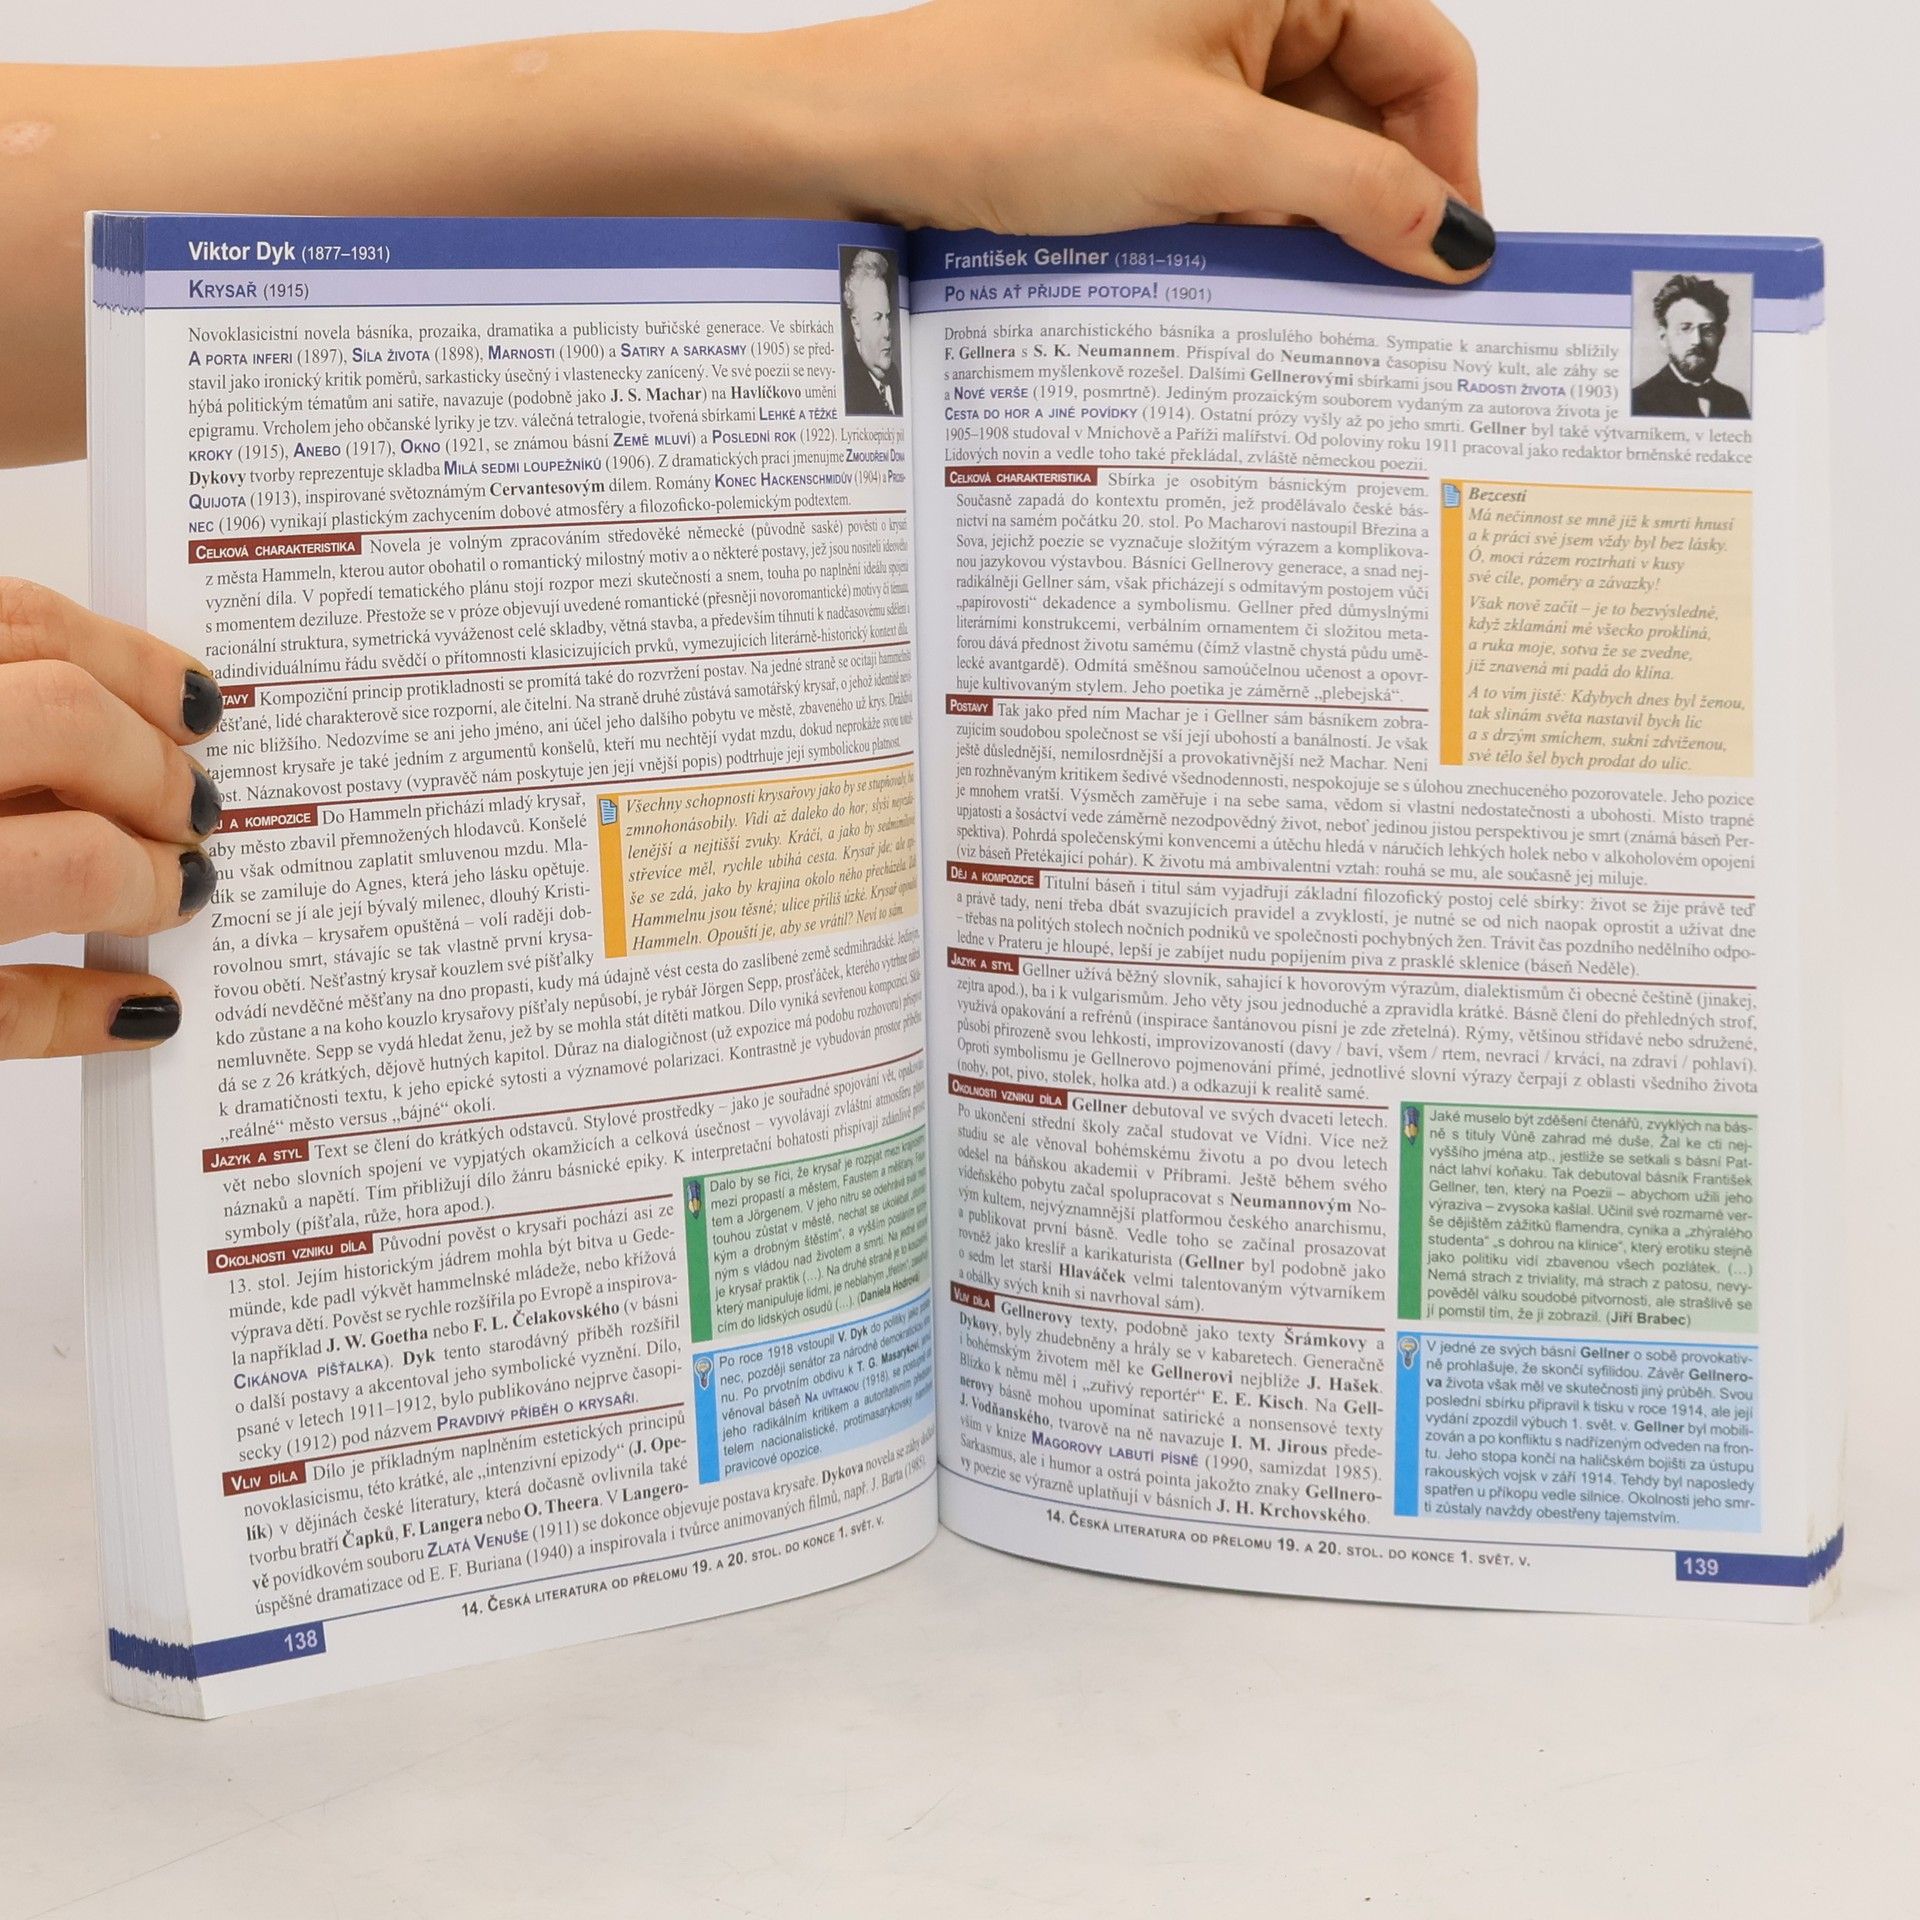 Viktor Dyk (1877–1931)
KRYSAŘ (1915)
Novoklasicistní novela básníka, prozaika, dramatika a publicisty buřičské generace. Ve sbírkách
A PORTA INFERI (1897), SÍLA ŽIVOTA (1898), MARNOSTI (1900) a SATIRY A SARKASMY (1905) se před-
stavil jako ironický kritik poměrů, sarkasticky úsečný i vlastenecky zanícený. Ve své poezii se nevy-
hýbá politickým tématům ani satiře, navazuje (podobně jako J. S. Machar) na Havlíčkovo umění
epigramu. Vrcholem jeho občanské lyriky je tzv. válečná tetralogie, tvořená sbírkami LEHKÉ A TĚŽKÉ
KROKY (1915), ANEBO (1917), OKNO (1921, se známou básní ZEMĚ MLUVÍ) a POSLEDNÍ ROK (1922). Lyrickoepický pól
Dykovy tvorby reprezentuje skladba MILÁ SEDMI LOUPEŽNÍKŮ (1906). Z dramatických prací jmenujme ZMOUDŘENÍ DONA
QUIJOTA (1913), inspirované světoznámým Cervantesovým dílem. Romány KONEC HACKENSCHMIDŮV (1904) a PROSI-
NEC (1906) vynikají plastickým zachycením dobové atmosféry a filozoficko-polemickým podtextem.
CELKOVÁ CHARAKTERISTIKA Novela je volným zpracováním středověké německé (původně saské) pověsti o krysaři
z města Hammeln, kterou autor obohatil o romantický milostný motiv a o některé postavy, jež jsou nositeli ideového
vyznění díla. V popředí tematického plánu stojí rozpor mezi skutečností a snem, touha po naplnění ideálu spojená
s momentem deziluze. Přestože se v próze objevují uvedené romantické (přesněji novoromantické) motivy či témata,
racionální struktura, symetrická vyváženost celé skladby, větná stavba, a především tíhnutí k nadčasovému sdělení a
nadindividuálnímu řádu svědčí o přítomnosti klasicizujících prvků, vymezujících literárně-historický kontext díla.
TAVY Kompoziční princip protikladnosti se promítá také do rozvržení postav. Na jedné straně se ocitají hammelnští
ěšťané, lidé charakterově sice rozporní, ale čitelní. Na straně druhé zůstává samotářský krysař, o jehož identitě neví-
me nic bližšího. Nedozvíme se ani jeho jméno, ani účel jeho dalšího pobytu ve městě, zbaveného už krys.
tajemnost krysaře je také jedním z argumentů konšelů, kteří mu nechtějí vydat mzdu, dokud neprokáže svou
ost. Náznakovost postavy (vypravěč nám poskytuje jen její vnější popis) podtrhuje její symbolickou platnost.
J A KOMPOZICE Do Hammeln přichází mladý krysař,
aby město zbavil přemnožených hlodavců. Konšelé
mu však odmítnou zaplatit smluvenou mzdu. Mla-
dík se zamiluje do Agnes, která jeho lásku opětuje.
Zmocní se jí ale její bývalý milenec, dlouhý Kristi-
án, a dívka – krysařem opuštěná – volí raději dob-
rovolnou smrt, stávajíc se tak vlastně první krysa-
řovou obětí. Nešťastný krysař kouzlem své píšťalky
odvádí nevděčné měšťany na dno propasti, kudy má údajně vést cesta do zaslíbené země sedmihradské. Jediným,
kdo zůstane a na koho kouzlo krysařovy píšťaly nepůsobí, je rybář Jörgen Sepp, prosťáček, kterého vytrhne nářek
nemluvněte. Sepp se vydá hledat ženu, jež by se mohla stát dítěti matkou. Dílo vyniká sevřenou kompozicí. Sklá-
dá se z 26 krátkých, dějově hutných kapitol. Důraz na dialogičnost (už expozice má podobu rozhovoru) přispívá
k dramatičnosti textu, k jeho epické sytosti a významové polarizaci. Kontrastně je vybudován prostor příběhu:
„reálné“ město versus „bájné“ okolí.
Všechny schopnosti krysařovy jako by se stupňovaly, ba
zmnohonásobily. Vidí až daleko do hor; slyší nejvzdá-
lenější a nejtišší zvuky. Kráčí, a jako by sedmimílové
střevíce měl, rychle ubíhá cesta. Krysař jde; ale spí-
še se zdá, jako by krajina okolo něho přecházela.
Hammelnu jsou těsné; ulice příliš úzké. Krysař opouští
Hammeln. Opouští je, aby se vrátil? Neví to sám.
JAZYK A STYL Text se člení do krátkých odstavců. Stylové prostředky – jako je souřadné spojování vět, opakování
vět nebo slovních spojení ve vypjatých okamžicích a celková úsečnost – vyvolávají zvláštní atmosféru plnou
náznaků a napětí. Tím přibližují dílo žánru básnické epiky. K interpretační bohatosti přispívají zdánlivě prosté
symboly (píšťala, růže, hora apod.).
OKOLNOSTI VZNIKU DÍLA Původní pověst o krysaři pochází asi ze
13. stol. Jejím historickým jádrem mohla být bitva u Gede-
münde, kde padl výkvět hammelnské mládeže, nebo křížová
výprava dětí. Pověst se rychle rozšířila po Evropě a inspirova-
la například J. W. Goetha nebo F. L. Čelakovského (v básni
CIKÁNOVA PÍŠŤALKA). Dyk tento starodávný příběh rozšířil
o další postavy a akcentoval jeho symbolické vyznění. Dílo,
psané v letech 1911–1912, bylo publikováno nejprve časopi-
secky (1912) pod názvem PRAVDIVÝ PŘÍBĚH O KRYSAŘI.
Dalo by se říci, že krysař je rozpjat mezi krajnostmi,
mezi propastí a městem, Faustem a měšťany, Faus-
tem a Jörgenem. V jeho nitru se odehrává svár mezi
touhou zůstat v městě, nechat se ukolébat „lidsky-
kým a drobným štěstím“, a vyšším posláním
ným s vládou nad životem a smrtí. Na jedné straně
je krysař praktik (...). Na druhé straně je to kouzelník,
který manipuluje lidmi, je neblahým „třetím“,
cím do lidských osudů (...). (Daniela Hodrová)
Po roce 1918 vstoupil V. Dyk do politiky jako posla-
nec, později senátor za národně demokratickou stra-
nu. Po prvotním obdivu k T. G. Masarykovi, jemuž
věnoval báseň NA UVÍTANOU (1918), se postupně stal
jeho radikálním kritikem a autoritativním představi-
telem nacionalistické, protimasarykovsky naměřené
pravicové opozice.
VLIV DÍLA Dílo je příkladným naplněním estetických principů
novoklasicismu, této krátké, ale „intenzivní epizody“ (J. Ope-
lík) v dějinách české literatury, která dočasně ovlivnila také
tvorbu bratří Čapků, F. Langera nebo O. Theera. V Langero-
vě povídkovém souboru ZLATÁ VENUŠE (1911) se dokonce objevuje postava krysaře. Dykova novela se záhy dočkala
úspěšné dramatizace od E. F. Buriana (1940) a inspirovala i tvůrce animovaných filmů, např. J. Bartu (1985).
14. ČESKÁ LITERATURA OD PŘELOMU 19. A 20. STOL. DO KONCE 1. SVĚT. V.
138
František Gellner (1881–1914)
PO NÁS AŤ PŘIJDE POTOPA! (1901)
Drobná sbírka anarchistického básníka a proslulého bohéma. Sympatie k anarchismu sblížily
F. Gellnera s S. K. Neumannem. Přispíval do Neumannova časopisu Nový kult, ale záhy se
s anarchismem myšlenkově rozešel. Dalšími Gellnerovými sbírkami jsou RADOSTI ŽIVOTA (1903)
a NOVÉ VERŠE (1919, posmrtně). Jediným prozaickým souborem vydaným za autorova života je
CESTA DO HOR A JINÉ POVÍDKY (1914). Ostatní prózy vyšly až po jeho smrti. Gellner byl také výtvarníkem, v letech
1905–1908 studoval v Mnichově a Paříži malířství. Od poloviny roku 1911 pracoval jako redaktor brněnské redakce
Lidových novin a vedle toho také překládal, zvláště německou poezii.
CELKOVÁ CHARAKTERISTIKA Sbírka je osobitým básnickým projevem.
Současně zapadá do kontextu proměn, jež prodělávalo české bás-
nictví na samém počátku 20. stol. Po Macharovi nastoupil Březina a
Sova, jejichž poezie se vyznačuje složitým výrazem a komplikova-
nou jazykovou výstavbou. Básníci Gellnerovy generace, a snad nej-
radikálněji Gellner sám, však přicházejí s odmítavým postojem vůči
„papírovosti“ dekadence a symbolismu. Gellner před důmyslnými
literárními konstrukcemi, verbálním ornamentem či složitou meta-
forou dává přednost životu samému (čímž vlastně chystá půdu umě-
lecké avantgardě). Odmítá směšnou samoúčelnou učenost a opovr-
huje kultivovaným stylem. Jeho poetika je záměrně „plebejská“.
Bezcestí
Má nečinnost se mně již k smrti hnusí
a k práci své jsem vždy byl bez lásky.
Ó, moci rázem roztrhati v kusy
své cíle, poměry a závazky!
Však nově začít – je to bezvýsledné,
když zklamání mé všecko proklíná,
a ruka moje, sotva že se zvedne,
již znavená mi padá do klína.
A to vím jistě: Kdybych dnes byl ženou,
tak slinám světa nastavil bych líc
a s drzým smíchem, sukní zdviženou,
své tělo šel bych prodat do ulic.
POSTAVY Tak jako před ním Machar je i Gellner sám básníkem zobra-
zujícím soudobou společnost se vší její ubohostí a banálností. Je však
ještě důslednější, nemilosrdnější a provokativnější než Machar. Není
jen rozhněvaným kritikem šedivé všednodennosti, nespokojuje se s úlohou znechuceného pozorovatele. Jeho pozice
je mnohem vratší. Výsměch zaměřuje i na sebe sama, vědom si vlastní nedostatečnosti a ubohosti. Místo trapné
upjatosti a šosáctví vede záměrně nezodpovědný život, neboť jedinou jistou perspektivou je smrt (známá báseň Per-
spektiva). Pohrdá společenskými konvencemi a útěchu hledá v náručích lehkých holek nebo v alkoholovém opojení
(viz báseň Přetékající pohár). K životu má ambivalentní vztah: rouhá se mu, ale současně jej miluje.
DĚJ A KOMPOZICE Titulní báseň i titul sám vyjadřují základní filozofický postoj celé sbírky: život se žije právě teď
a právě tady, není třeba dbát svazujících pravidel a zvyklostí, je nutné se od nich naopak oprostit a užívat dne
– třebas na politých stolech nočních podniků ve společnosti pochybných žen. Trávit čas pozdního nedělního odpo-
ledne v Prateru je hloupé, lepší je zabíjet nudu popíjením piva z prasklé sklenice (báseň Neděle).
JAZYK A STYL Gellner užívá běžný slovník, sahající k hovorovým výrazům, dialektismům či obecné češtině (jinakej,
zejtra apod.), ba i k vulgarismům. Jeho věty jsou jednoduché a zpravidla krátké. Básně člení do přehledných strof,
využívá opakování a refrénů (inspirace šantánovou písní je zde zřetelná). Rýmy, většinou střídavé nebo sdružené,
působí přirozeně svou lehkostí, improvizovaností (davy / baví, všem / rtem, nevrací / krvácí, na zdraví / pohlaví).
Oproti symbolismu je Gellnerovo pojmenování přímé, jednotlivé slovní výrazy čerpají z oblasti všedního života
(nohy, pot, pivo, stolek, holka atd.) a odkazují k realitě samé.
OKOLNOSTI VZNIKU DÍLA Gellner debutoval ve svých dvaceti letech.
Po ukončení střední školy začal studovat ve Vídni. Více než
studiu se ale věnoval bohémskému životu a po dvou letech
odešel na báňskou akademii v Příbrami. Ještě během svého
vídeňského pobytu začal spolupracovat s Neumannovým No-
vým kultem, nejvýznamnější platformou českého anarchismu,
a publikovat první básně. Vedle toho se začínal prosazovat
rovněž jako kreslíř a karikaturista (Gellner byl podobně jako
o sedm let starší Hlaváček velmi talentovaným výtvarníkem
a obálky svých knih si navrhoval sám).
Jaké muselo být zděšení čtenářů, zvyklých na bás-
ně s tituly Vůně zahrad mé duše, Žal ke cti nej-
vyššího jména atp., jestliže se setkali s básní Pat-
náct lahví koňaku. Tak debutoval básník František
Gellner, ten, který na Poezii – abychom užili jeho
výraziva – zvysoka kašlal. Učinil své rozmarné ver-
še dějištěm zážitků flamendra, cynika a „zhýralého
studenta“ „s dohrou na klinice“, který erotiku stejně
jako politiku vidí zbavenou všech pozlátek. (...)
Nemá strach z triviality, má strach z patosu, nevy-
pověděl válku soudobé pitvornosti, ale strašlivě se
jí pomstil tím, že ji zobrazil. (Jiří Brabec)
VLIV DÍLA Gellnerovy texty, podobně jako texty Šrámkovy a
Dykovy, byly zhudebněny a hrály se v kabaretech. Generačně
i bohémským životem měl ke Gellnerovi nejblíže J. Hašek.
Blízko k němu měl i „zuřivý reportér“ E. E. Kisch. Na Gell-
nerovy básně mohou upomínat satirické a nonsensové texty
J. Vodňanského, tvarově na ně navazuje I. M. Jirous přede-
vším v knize MAGOROVY LABUTÍ PÍSNĚ (1990, samizdat 1985).
Sarkasmus, ale i humor a ostrá pointa jakožto znaky Gellnero-
vy poezie se výrazně uplatňují v básních J. H. Krchovského.
V jedné ze svých básní Gellner o sobě provokativ-
ně prohlašuje, že skončí syfilidou. Závěr Gellnero-
va života však měl ve skutečnosti jiný průběh. Svou
poslední sbírku připravil k tisku v roce 1914, ale její
vydání zpozdil výbuch 1. svět. v. Gellner byl mobili-
zován a po konfliktu s nadřízeným odveden na fron-
tu. Jeho stopa končí na haličském bojišti za ústupu
rakouských vojsk v září 1914. Tehdy byl naposledy
spatřen u příkopu vedle silnice. Okolnosti jeho smr-
ti zůstaly navždy obestřeny tajemstvím.
14. ČESKÁ LITERATURA OD PŘELOMU 19. A 20. STOL. DO KONCE 1. SVĚT. V.
139